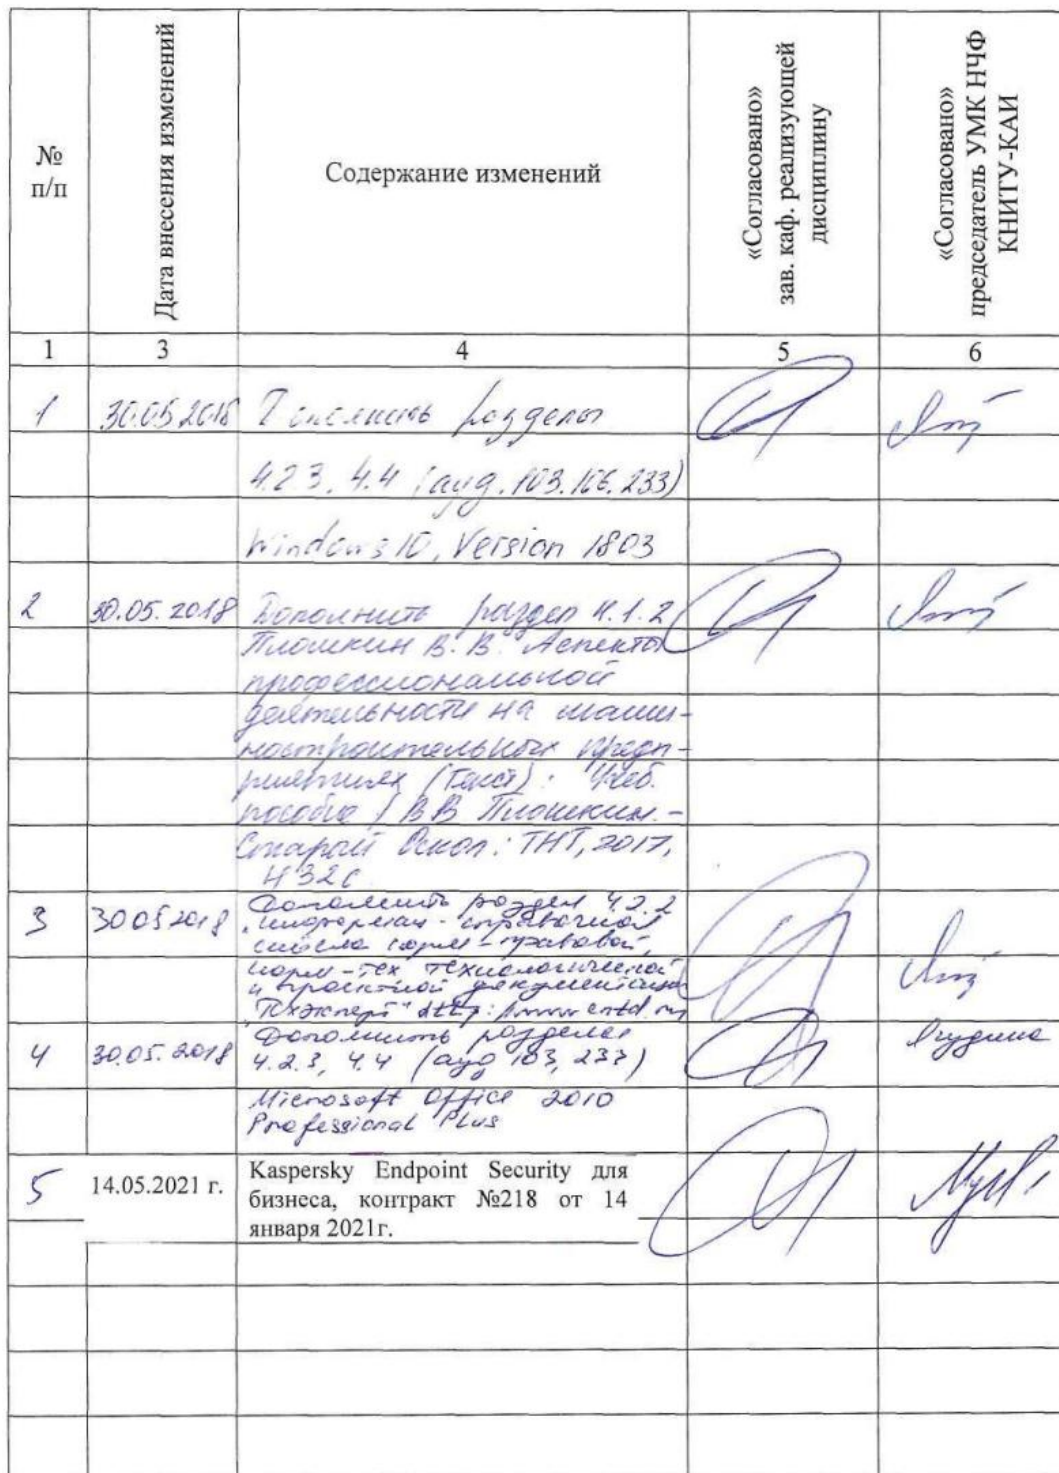 №
п/п
Дата внесения изменений
Содержание изменений
«Согласовано»
зав. каф. реализующей
дисциплину
«Согласовано»
председатель УМК НЧФ
КНИТУ-КАИ
1 3 4 5 6
1 30.05.2018 Дополнить разделы
4.2.3, 4.4 (ауд. 103, 106, 233)
Windows 10, Version 1803
2 30.05.2018 Дополнить раздел 4.1.2
Плошкин В.В. Аспекты
профессиональной
деятельности на маши-
ностроительных предп-
риятиях (Текст): Учеб.
пособие / ВВ Плошкин. -
Старый Оскол: ТНТ, 2017,
432с
3 30 05 2018 Дополнить раздел 4.2.2
справочной
система норм-правовой,
норм-тех технологической
и проектной документации
"Техэксперт" http://www.cntd.ru
4 30.05.2018 Дополнить разделы
4.2.3, 4.4 (ауд 103, 233)
Microsoft Office 2010
Professional Plus
5 14.05.2021 г. Kaspersky Endpoint Security для
бизнеса, контракт №218 от 14
января 2021г.